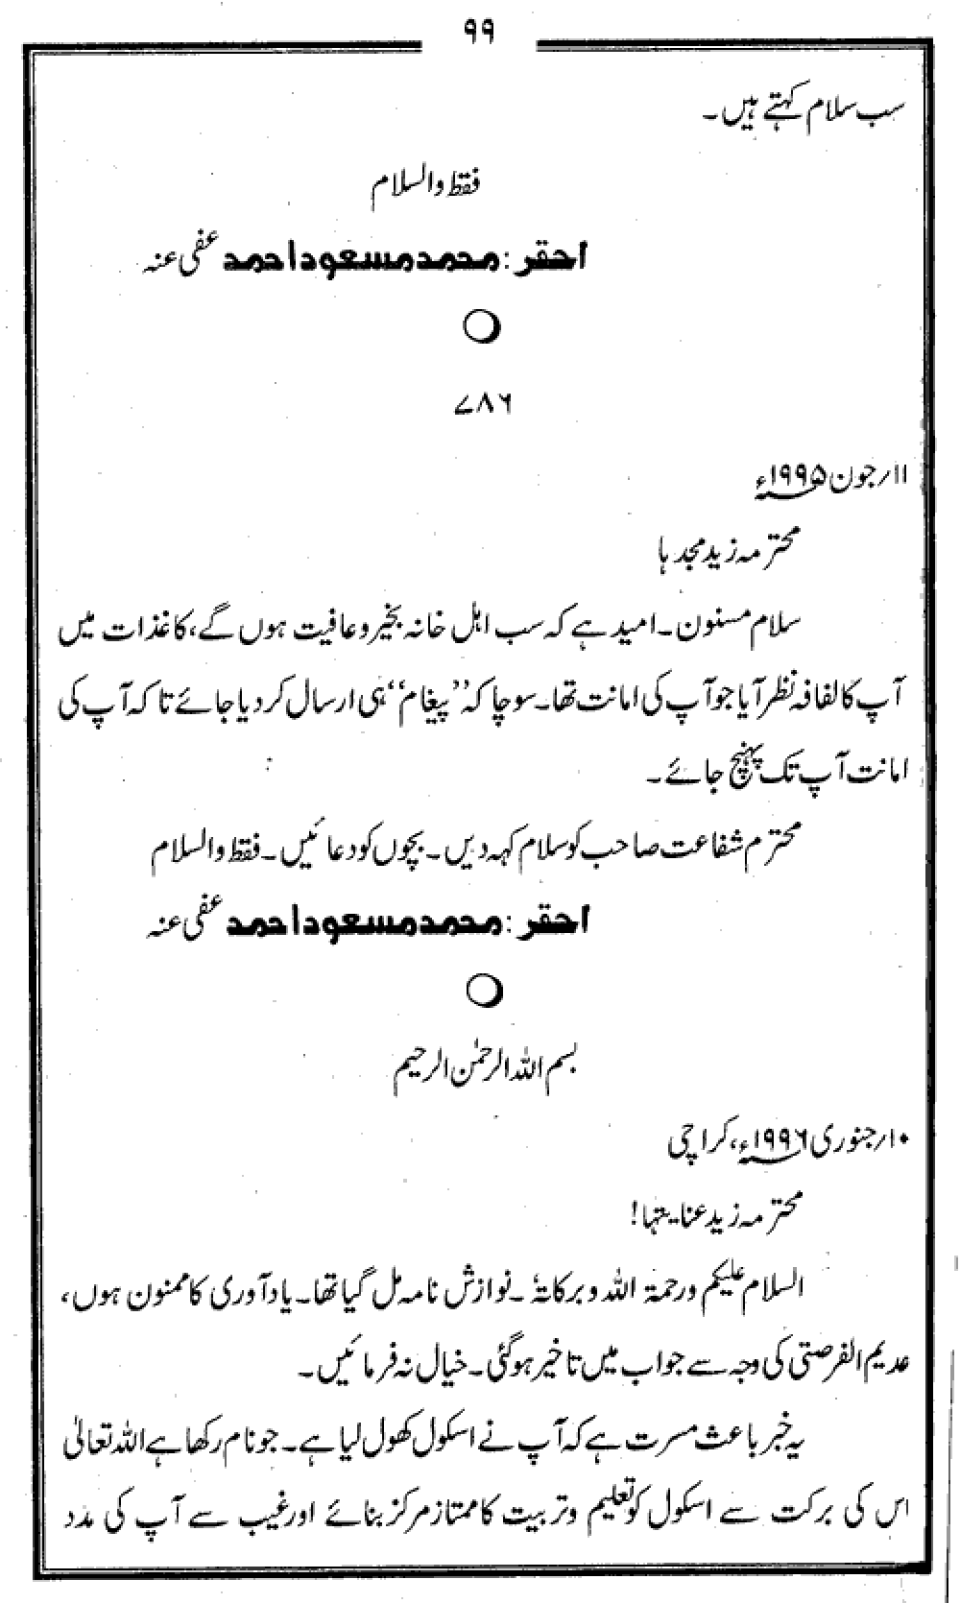 ۹۹
سب سلام کہتے ہیں۔
فقط والسلام
احقر: محمد مسعود احمد عفی عنہ
۷۸۶
۱۱؍جون ۱۹۹۵ء
محترمہ زید مجدہا
سلام مسنون۔ امید ہے کہ سب اہل خانہ بخیر و عافیت ہوں گے، کاغذات میں
آپ کا لفافہ نظر آیا جو آپ کی امانت تھا۔ سوچا کہ ’’پیغام‘‘ ہی ارسال کر دیا جائے تاکہ آپ کی
امانت آپ تک پہنچ جائے۔
محترم شفاعت صاحب کو سلام کہہ دیں۔ بچوں کو دعائیں۔ فقط والسلام
احقر: محمد مسعود احمد عفی عنہ
بسم اللہ الرحمٰن الرحیم
۱۰؍جنوری ۱۹۹۶ء، کراچی
محترمہ زید عنایتہا!
السلام علیکم ورحمۃ اللہ و برکاتہٗ۔ نوازش نامہ مل گیا تھا۔ یاد آوری کا ممنون ہوں،
عدیم الفرصتی کی وجہ سے جواب میں تاخیر ہو گئی۔ خیال نہ فرمائیں۔
یہ خبر باعث مسرت ہے کہ آپ نے اسکول کھول لیا ہے۔ جو نام رکھا ہے اللہ تعالیٰ
اس کی برکت سے اسکول کو تعلیم و تربیت کا ممتاز مرکز بنائے اور غیب سے آپ کی مدد